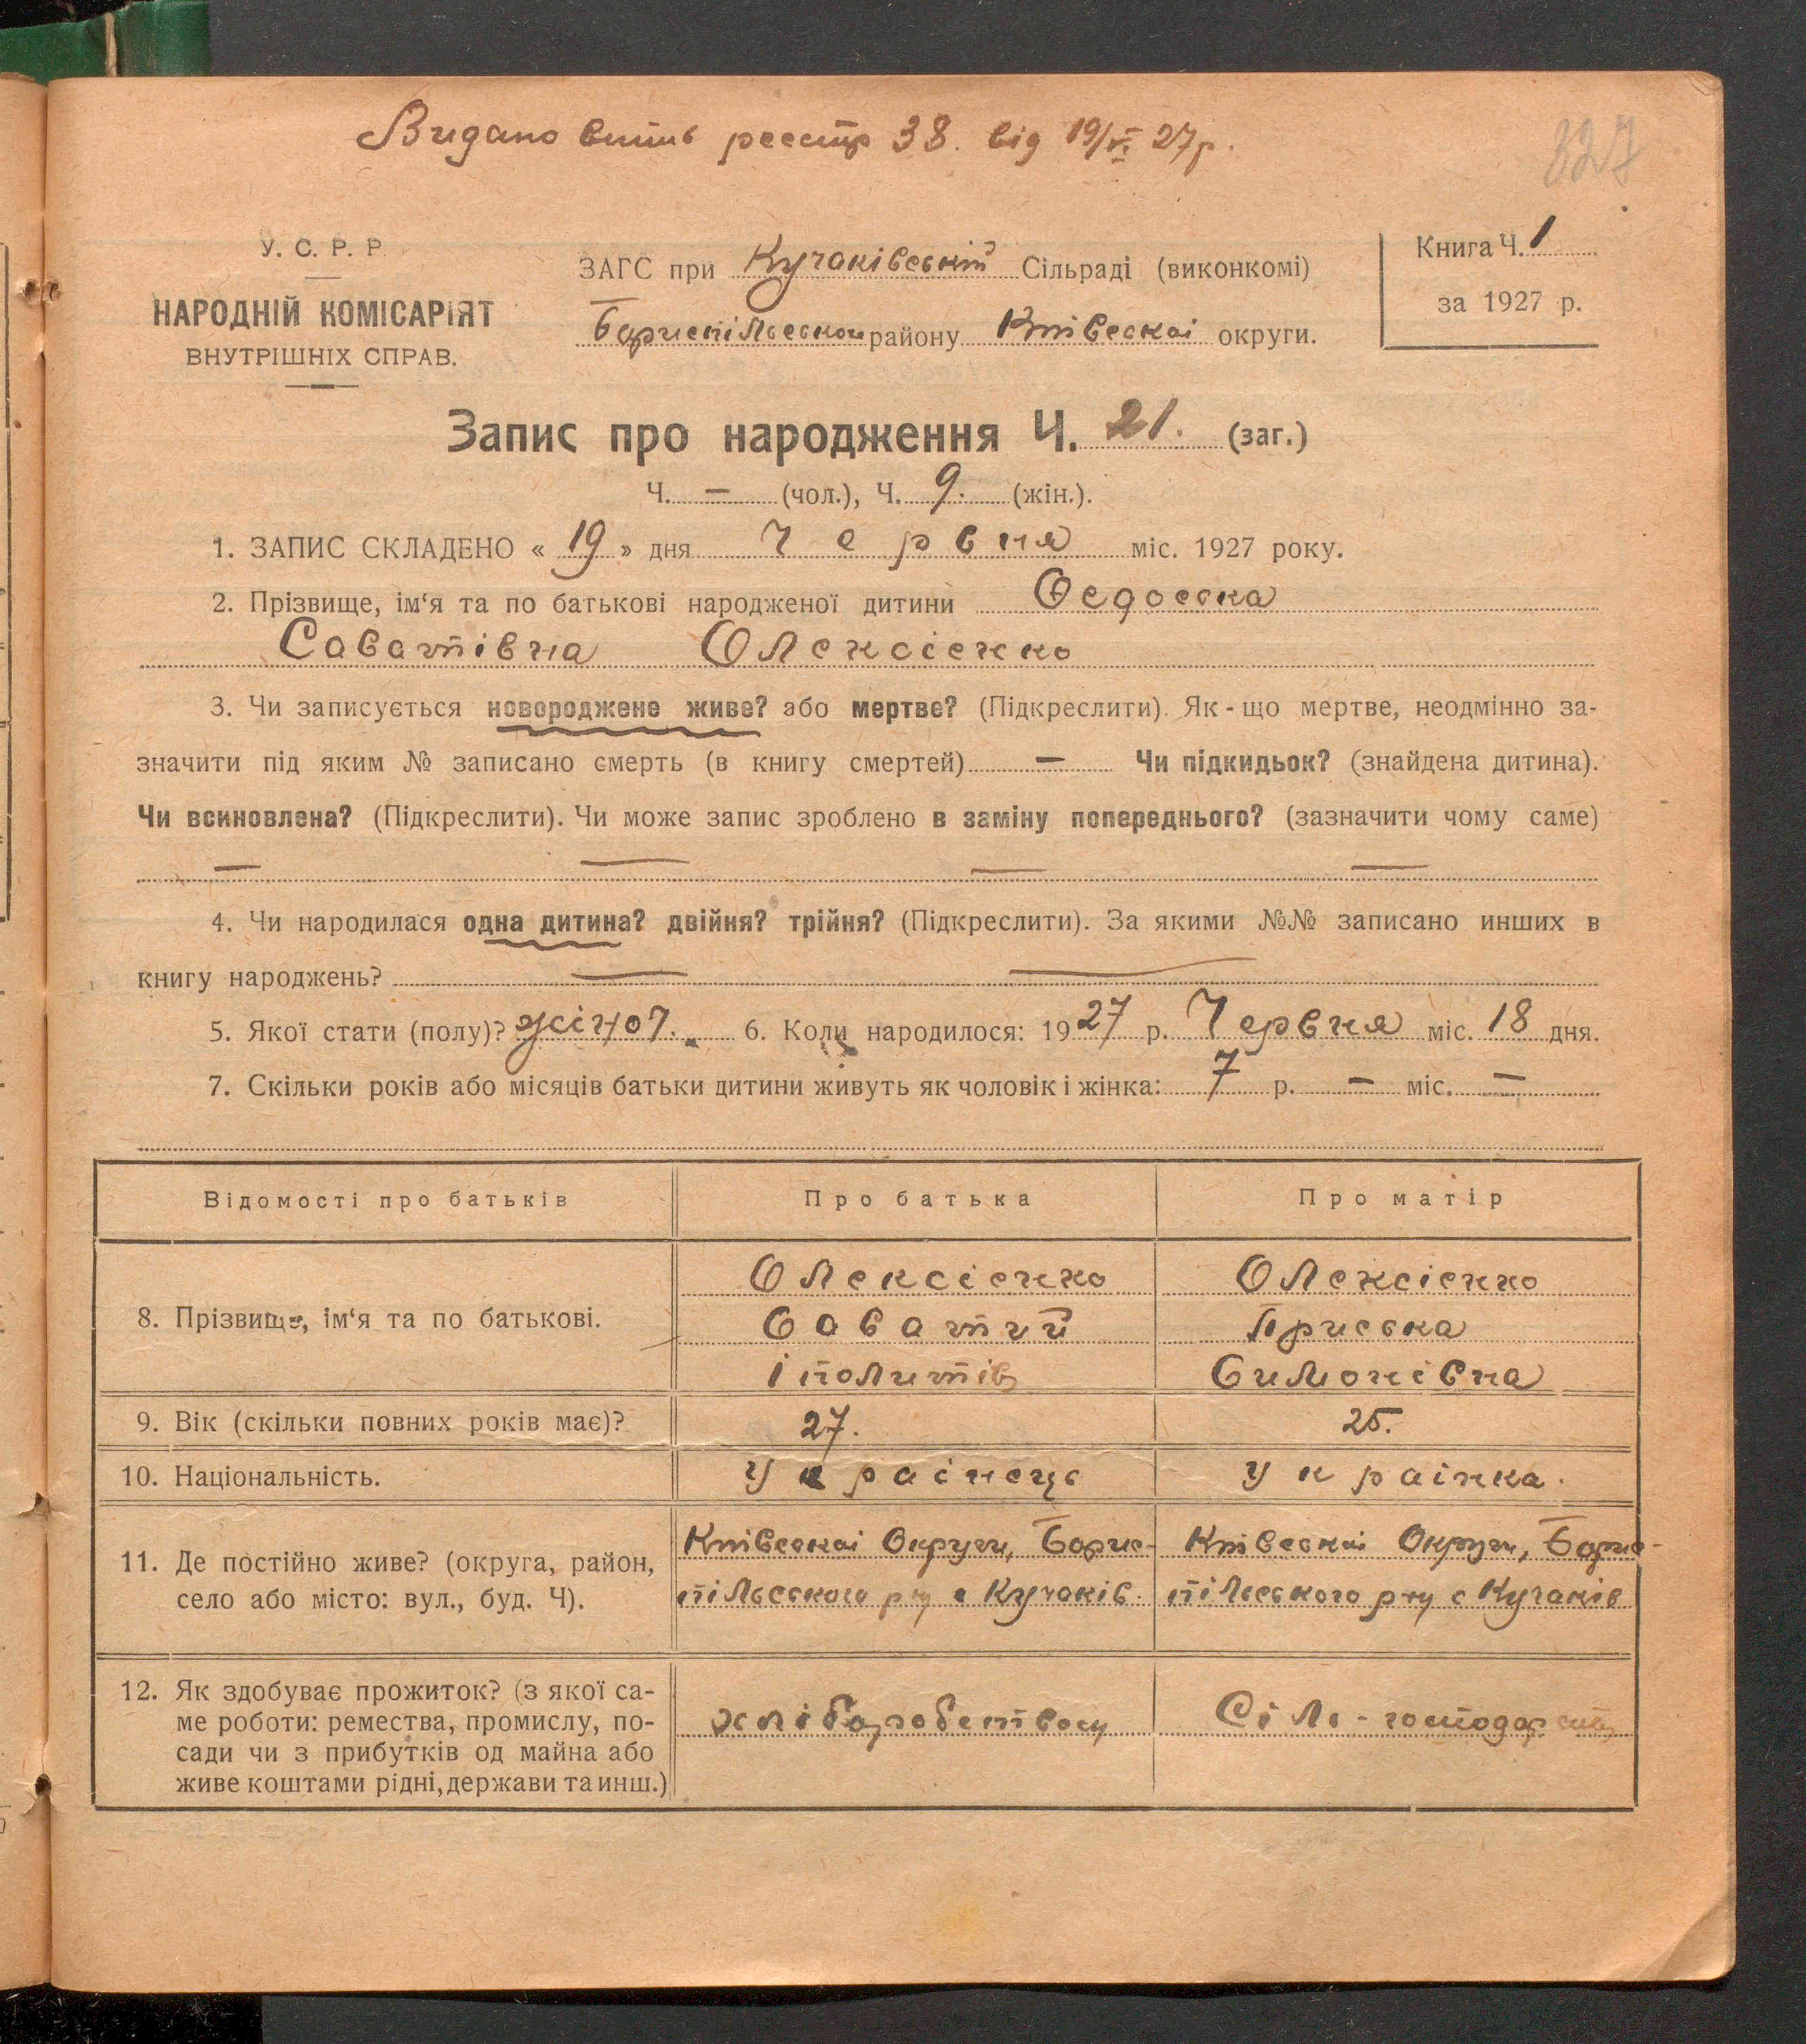 Видано витяг реестр 38. від 19/VI 27р.
У. С. Р. Р.
НАРОДНІЙ КОМІСАРІЯТ
ВНУТРІШНІХ СПРАВ.
ЗАГС при Кучаківській Сільраді (виконкомі)
Бориспільськой району Київськоі округи.
Книга Ч. 1
за 1927 р.
Запис про народження Ч. 21. (заг.)
Ч. — (чол.), Ч. 9. (жін.).
1. ЗАПИС СКЛАДЕНО « 19 » дня Червня міс. 1927 року.
2. Прізвище, ім‘я та по батькові народженої дитини Федоська
Саватівна Олексієнко
3. Чи записується новороджене живе? або мертве? (Підкреслити). Як-що мертве, неодмінно за-
значити під яким № записано смерть (в книгу смертей) — Чи підкидьок? (знайдена дитина).
Чи всиновлена? (Підкреслити). Чи може запис зроблено в заміну попереднього? (зазначити чому саме)
— — — —
4. Чи народилася одна дитина? двійня? трійня? (Підкреслити). За якими №№ записано инших в
книгу народжень? — —
5. Якої стати (полу)? жіноч. 6. Коли народилося: 1927 р. Червня міс. 18 дня.
7. Скільки років або місяців батьки дитини живуть як чоловік і жінка: 7 р. — міс. —
Відомості про батьків Про батька Про матір
8. Прізвище, ім‘я та по батькові.
Олексієнко
Саватий
Іполитів
Олексієнко
Приська
Симонівна
9. Вік (скільки повних років має)? 27. 25.
10. Національність. Украінець Украінка.
11. Де постійно живе? (округа, район,
село або місто: вул., буд. Ч).
Київськоі Округи, Борис-
пільського р-ну с Кучаків.
Київськоі Округи, Борис-
пільського р-ну с Кучаків
12. Як здобуває прожиток? (з якої са-
ме роботи: ремества, промислу, по-
сади чи з прибутків од майна або
живе коштами рідні, держави та инш.)
хліборобством
Сіль-господар